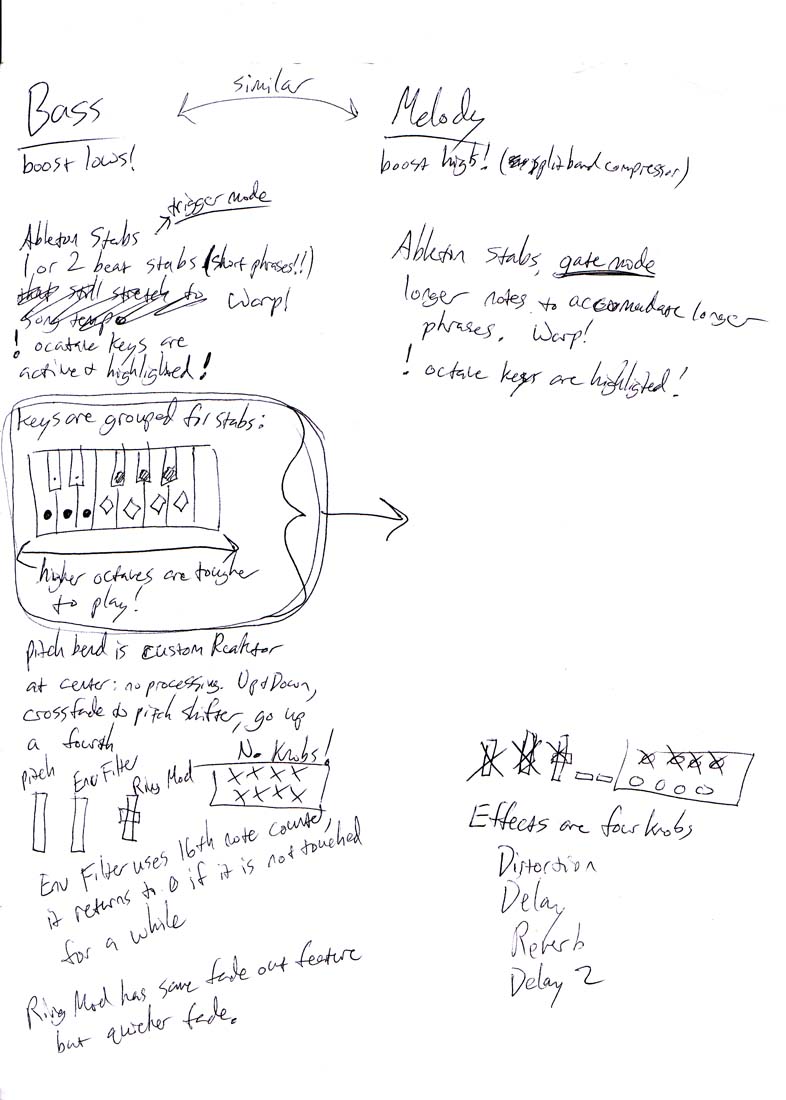 similar
Bass
boost lows!
trigger mode
Ableton Stabs
1 or 2 beat stabs (short phrases!!)
Warp!
! ocatave keys are
active & highlighted!
keys are grouped for stabs:
higher octaves are tougher
to play!
pitch bend is custom Reaktor
at center: no processing. Up & Down,
crossfade to pitch shifter, go up
a fourth
No Knobs!
pitch
Env Filter
Ring Mod
Env Filter uses 16th note counter,
it returns to 0 if it is not touched
for a while
Ring Mod has same fade out feature
but quicker fade.
Melody
boost high! (splitband compressor)
Ableton Stabs, gate mode
longer notes to accomadate longer
phrases. Warp!
! octave keys are highligted!
Effects are four knobs
Distortion
Delay
Reverb
Delay 2